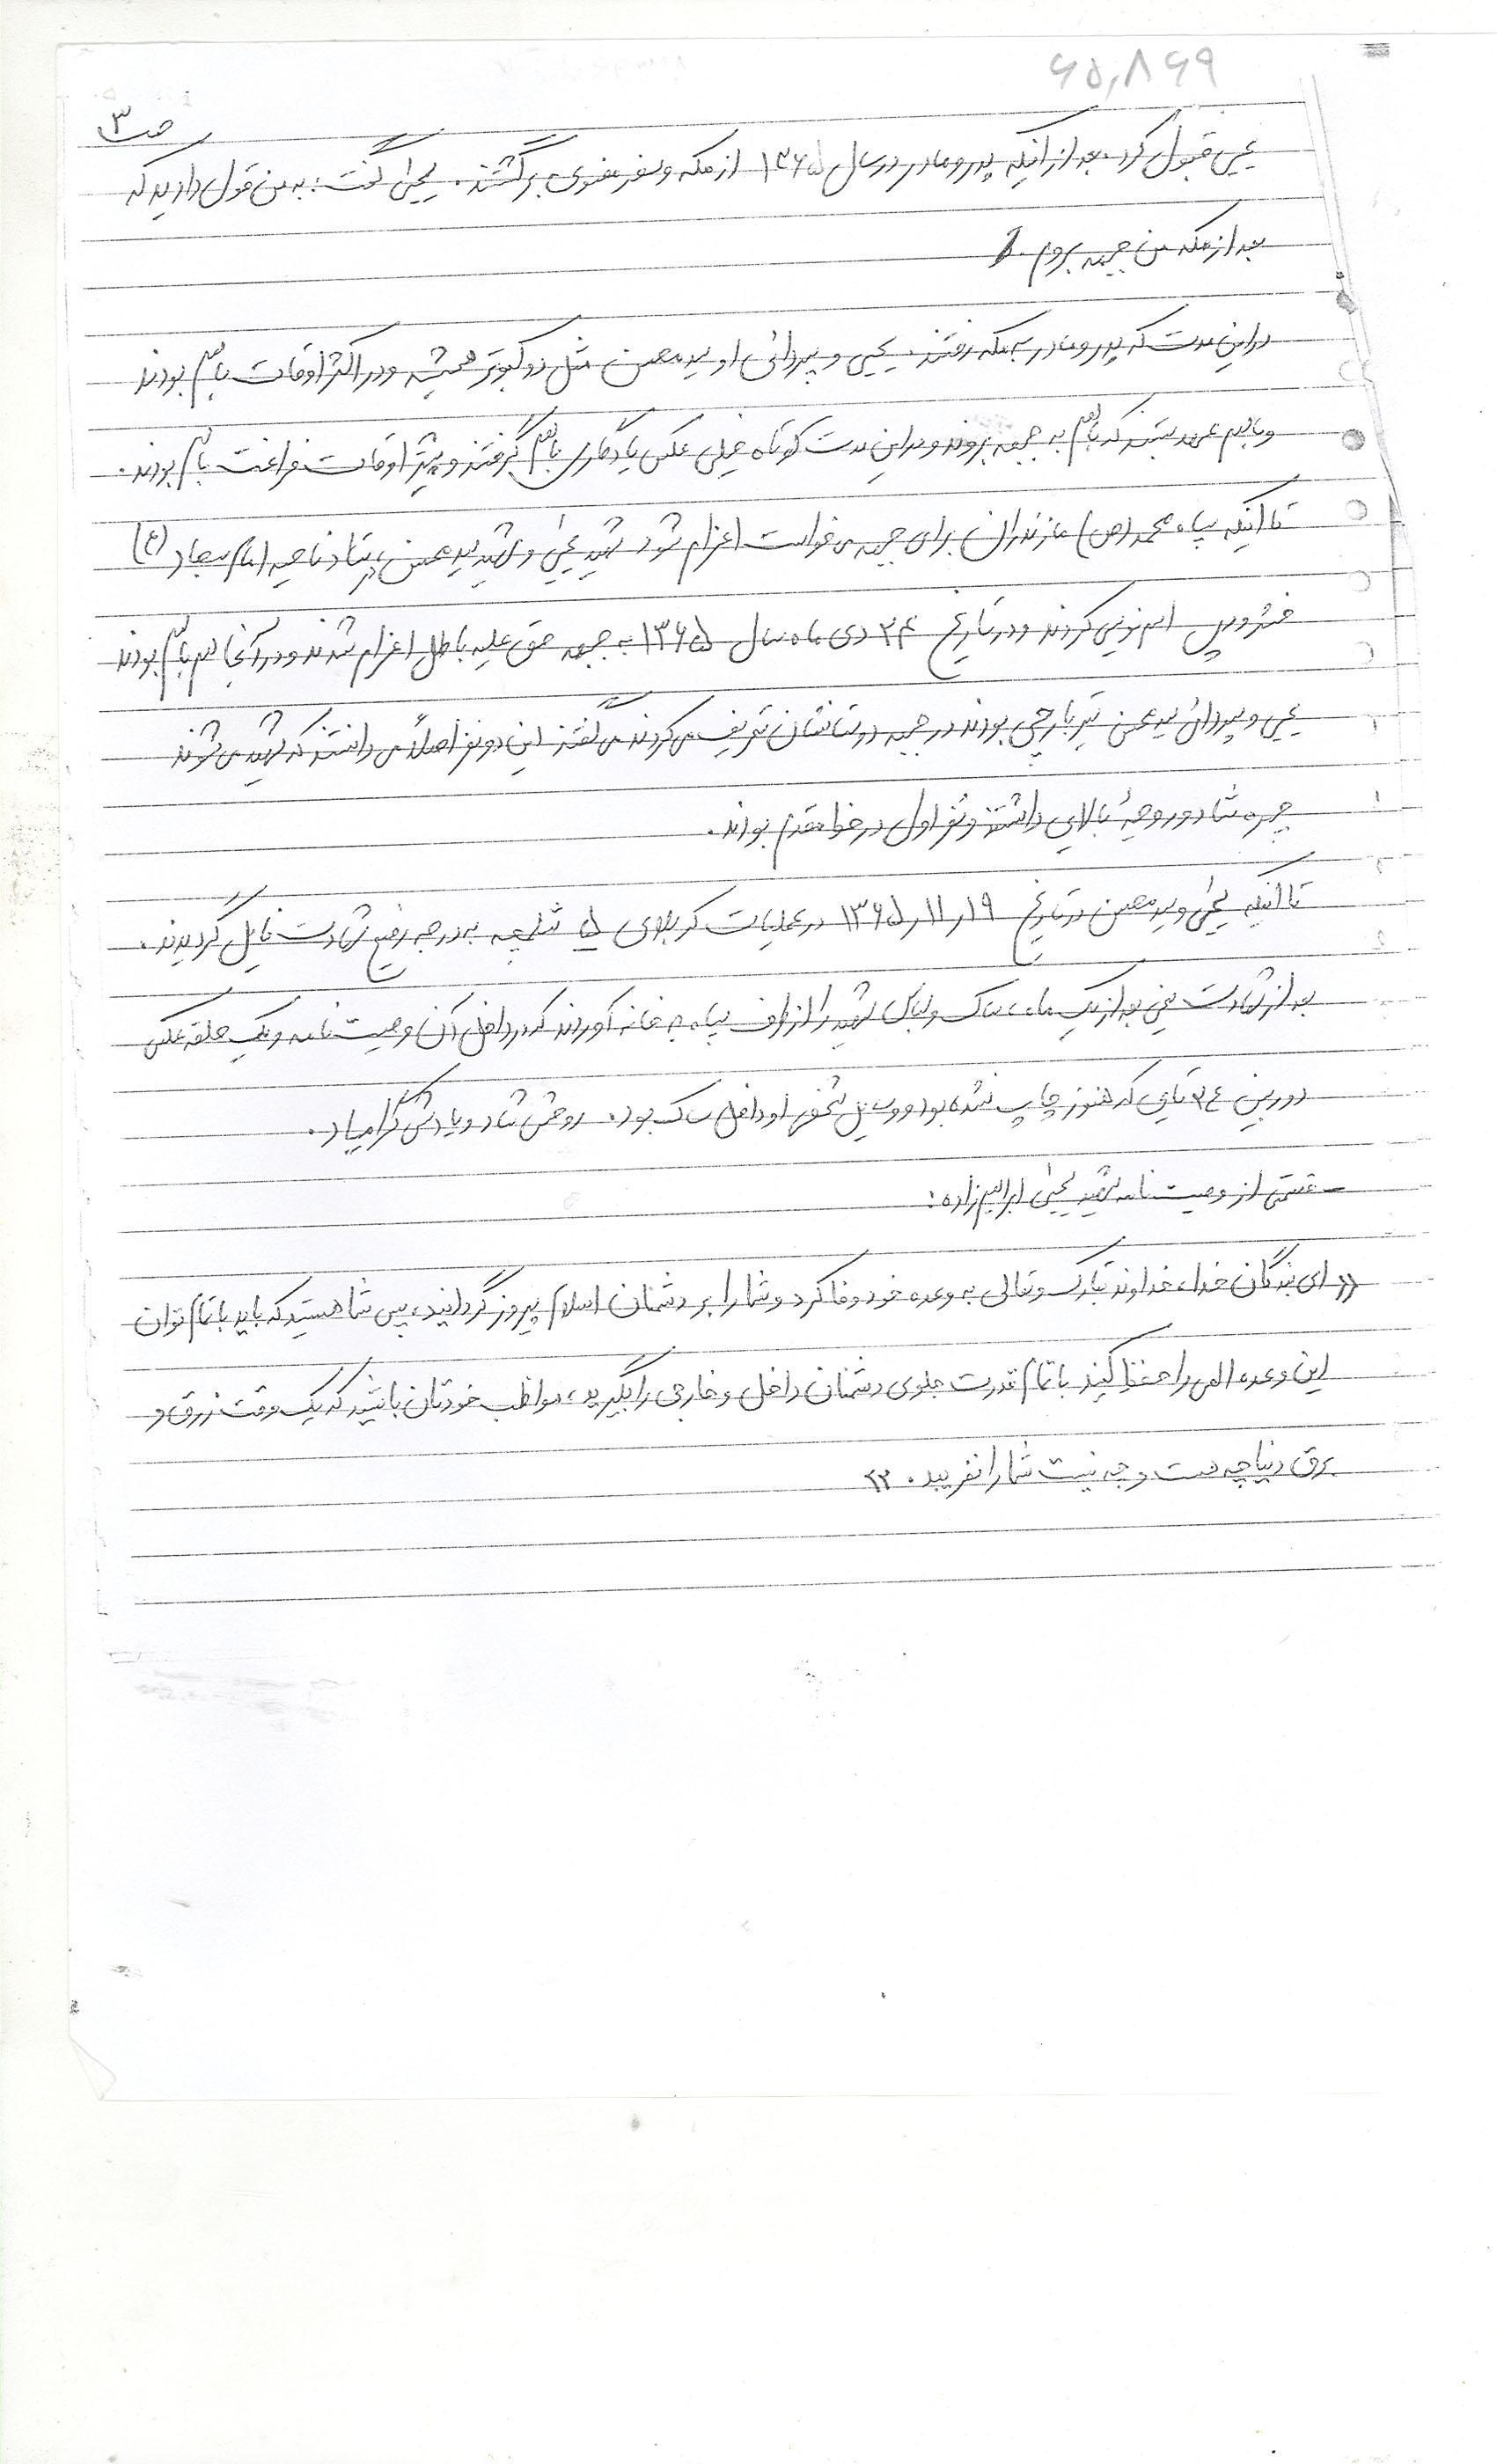 ۶۵٫۸۶۹
ص ۳
یحیی قبول کرد. بعد از اینکه پدر و مادر در سال ۱۳۶۵ از مکه و سفر معنوی برگشتند. یحیی گفت: به من قول دادید که
بعد از مکه من جبهه بروم.
در این مدت که پدر و مادر به مکه رفتند. یحیی و پسردائی او سید محسن مثل دو کبوتر همیشه و در اکثر اوقات با هم بودند
و با هم عهد بستند که با هم به جبهه بروند و در این مدت کوتاه خیلی عکس یادگاری با هم گرفتند و بیشتر اوقات فراغت با هم بودند.
تا اینکه سپاه محمد (ص) مازندران برای جبهه می خواست اعزام شود شهید یحیی و شهید سید محسن در ستاد ناحیه امام سجاد (ع)
خشرودپی اسم نویسی کردند و در تاریخ ۲۴ دی ماه سال ۱۳۶۵ به جبهه حق علیه باطل اعزام شدند و در آنجا هم با هم بودند
یحیی و پسردائی سید محسن تیربارچی بودند در جبهه دوستانشان تعریف می کردند می گفتند این دو نفر اصلاً می دانستند که شهید می شوند
چهره شاد و روحیهٔ بالایی داشتند و نفر اول در خط مقدم بودند.
تا اینکه یحیی و سید محسن در تاریخ ۱۳۶۵٫۱۱٫۱۹ در عملیات کربلای ۵ شلمچه به درجه رفیع شهادت نایل گردیدند.
بعد از شهادت یعنی بعد از یک ماه، ساک و لباس شهید را از طرف سپاه به خانه آوردند که در داخل آن وصیت نامه و یک حلقه عکس
دوربین ۳۶ تایی که هنوز چاپ نشده بود و وسایل شخصی او داخل ساک بود. روحش شاد و یادش گرامیباد.
– قسمتی از وصیت نامه شهید یحیی ابراهیم زاده:
«ای بندگان خدا، خداوند تبارک و تعالی به وعده خود وفا کرد و شما را بر دشمنان اسلام پیروز گردانید، پس شما هستید که باید با تمام توان
این وعده الهی را حفظ کنید با تمام قدرت جلوی دشمنان داخل و خارجی را بگیرید، مواظب خودتان باشید که یک وقت زرق و
برق دنیا چه هست و چه نیست شما را نفریبد.»